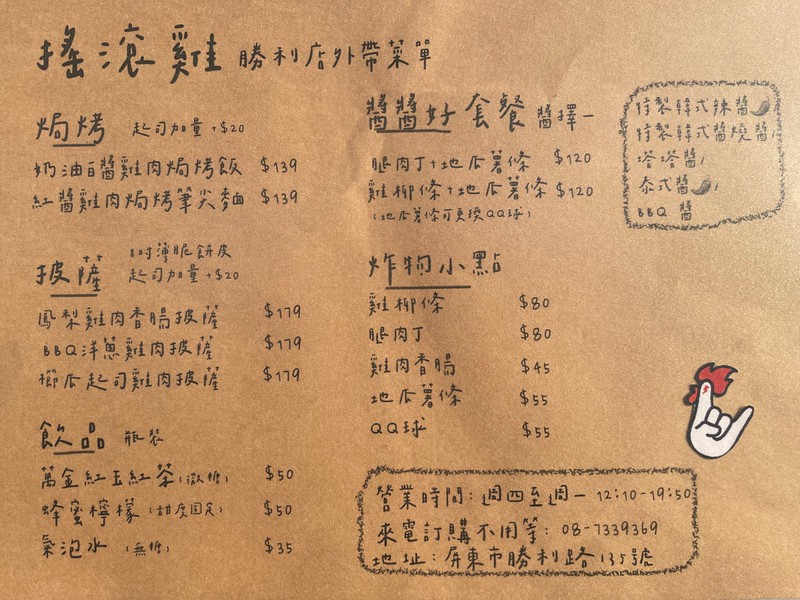 搖滾雞 勝利店外帶菜單
焗烤 起司加量 +$20
奶油白醬雞肉焗烤飯 $139
紅醬雞肉焗烤筆尖麵 $139
披薩 8吋薄脆餅皮
起司加量 +$20
鳳梨雞肉香腸披薩 $179
BBQ洋蔥雞肉披薩 $179
櫛瓜起司雞肉披薩 $179
飲品 瓶裝
萬金紅玉紅茶(微糖) $50
蜂蜜檸檬(甜度固定) $50
氣泡水(無糖) $35
醬醬好套餐 醬擇一
腿肉丁+地瓜薯條 $120
雞柳條+地瓜薯條 $120
(地瓜薯條可更換QQ球)
炸物小點
雞柳條 $80
腿肉丁 $80
雞肉香腸 $45
地瓜薯條 $55
QQ球 $55
特製韓式辣醬/
特製韓式醬燒醬/
塔塔醬/
泰式醬/
BBQ 醬
營業時間:週四至週一 12:10-19:50
來電訂購不用等: 08-7339369
地址:屏東市勝利路135號